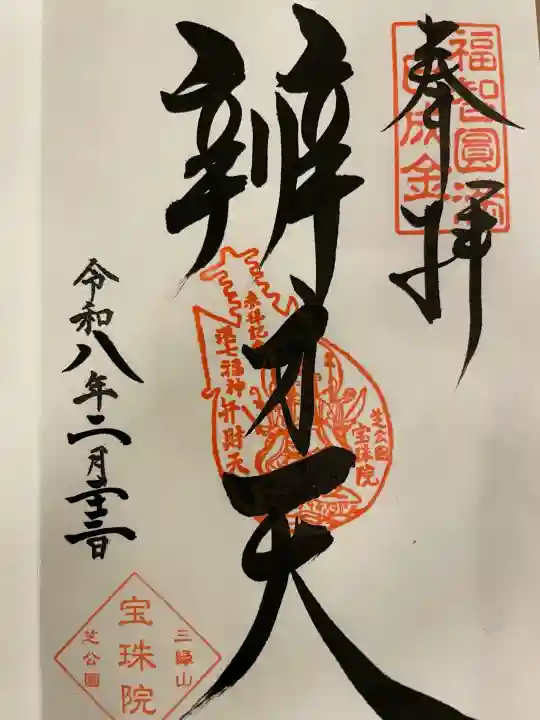 奉拝
福智圓満
巳成金
辨才天
芝公園
宝珠院
参拝記念
港七福神
弁財天
令和八年二月二十三日
三縁山
宝珠院
芝公園